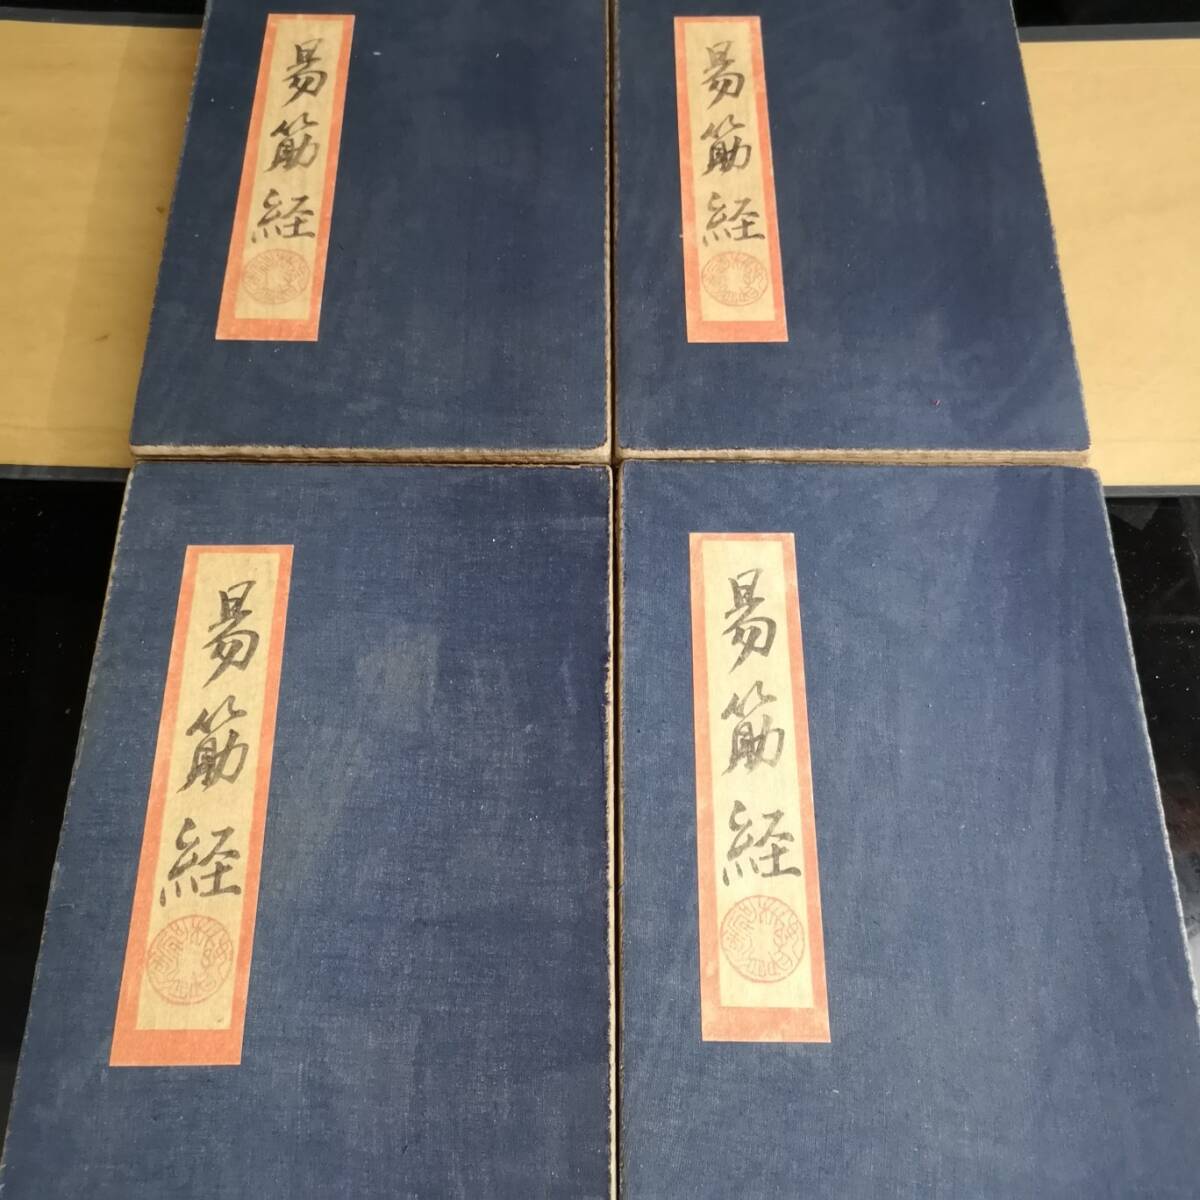 易筋経
易筋経
易筋経
易筋経